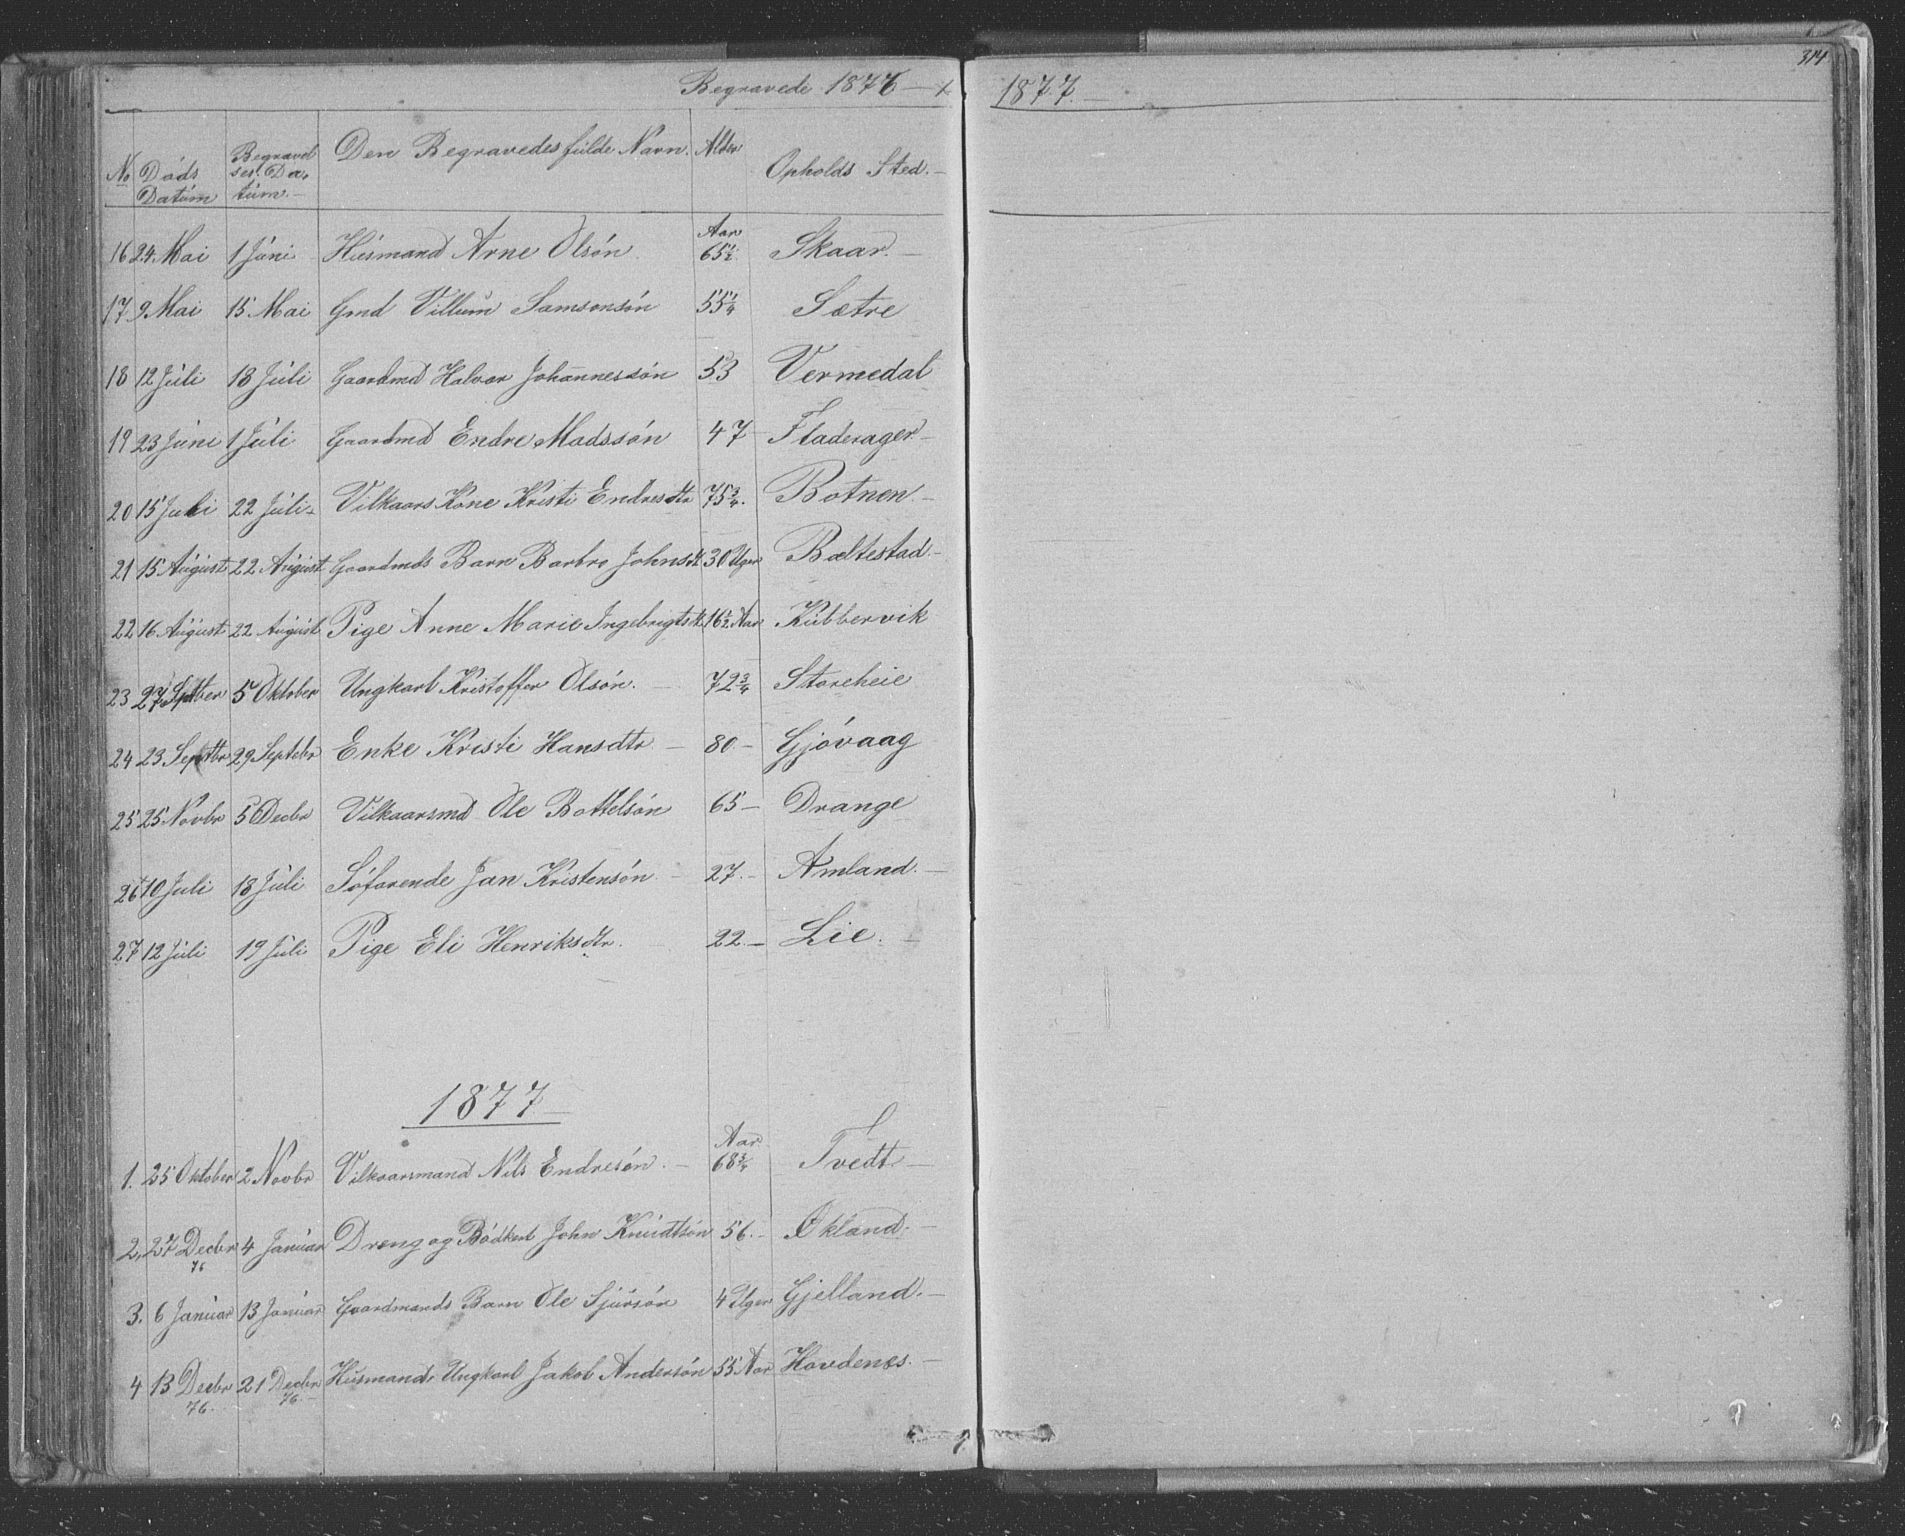 Begravede 1876 — 1877. —
314
No Döds Datum Begravelses Datum. Den Begravedes fulde Navn. Alder Opholds Sted. —
16 24 Mai 1 Júni Húsmand Arne Olsón. Aar 65½ Skaar. —
17 9 Mai 15 Mai Gmd Villum Samsonsón 55¼ Sætre
18 12 Júli 18 Júli Gaardmd Halvor Johannessón 53 Vermedal
19 23 Júni 1 Júli Gaardmd Endre Madssón 47 Fladerager. —
20 15 Juli 22 Júli Vilkaars Kone Kristi Endresdtr 75¾. Botnen. —
21 15 Aúgúst 22 Aúgúst Gaardmds Barn Barbro Johnsdt 30 Uger Bæltestad. —
22 16 Aúgúst 22 Aúgúst Pige Anne Marie Ingebrigtsdt 16½ Aar Kúbbervik
23 27 Septber 5 Oktober Ungkarl Kristoffer Olsón. — 72¾ Storeheie
24 23 Septbr 29 Septebr Enke Kristi Hansdtr — 80 — Gjóvaag
25 25 Novbr 5 Decbr Vilkaarsmd Ole Bottelsón 65 — Drange
26 10 Juli 18 Júli Sófarende Jan Kristensón — 27. — Amland. —
27 12 Júli 19 Júli Pige Eli Henriksdtr. 22. — Lie. —
1877
1. 25 Oktober 2 Novbr Vilkaarsmand Nils Endresón. — Aar 68¾ Tvedt —
2. 27 Decbr 76 4 Janúar Dreng og Bödkert John Knúdtsón 56. — Økland. —
3. 6 Janúar 13 Janúar Gaardmands Barn Ole Sjúrsón 4 Uger Gjelland. —
4 13 Decbr 76. 21 Decbr 76. — Húsmand, Ungkarl Jakob Andersón 55 Aar Hovdenes. —